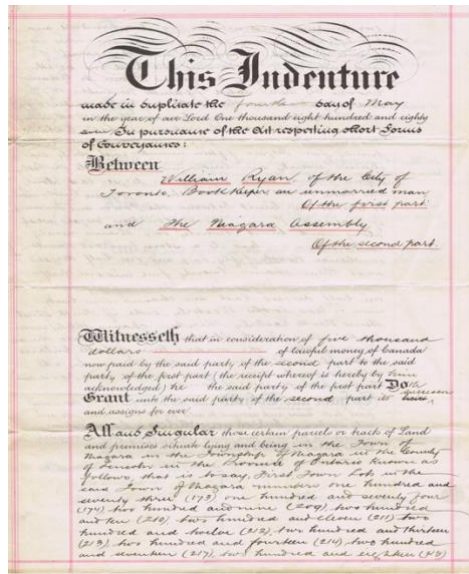 This Indenture
made in duplicate the fourth day of May
in the year of our Lord One thousand eight hundred and eighty
In pursuance of the Act respecting short Forms
of Conveyances:
Between
William Ryan of the City of
Toronto, Bookkeeper, an unmarried man
Of the first part
and The Niagara Assembly
Of the second part
Witnesseth that in consideration of five thousand
dollars of lawful money of Canada
now paid by the said party of the second part to the said
party of the first part (the receipt whereof is hereby by him
acknowledged) he the said party of the first part Doth
Grant unto the said party of the second part its successors
and assigns for ever
All and Singular those certain parcels or tracts of Land
and premises situate lying and being in the Town of
Niagara in the Township of Niagara in the County
of Lincoln in the Province of Ontario known as
follows, that is to say, First, Town Lots in the
said Town of Niagara numbers one hundred and
seventy three (173) one hundred and seventy four
(174) two hundred and nine (209), two hundred
and ten (210), two hundred and eleven (211) two
hundred and twelve (212), two hundred and thirteen
(213), two hundred and fourteen (214), two hundred
and seventeen (217), two hundred and eighteen (218)